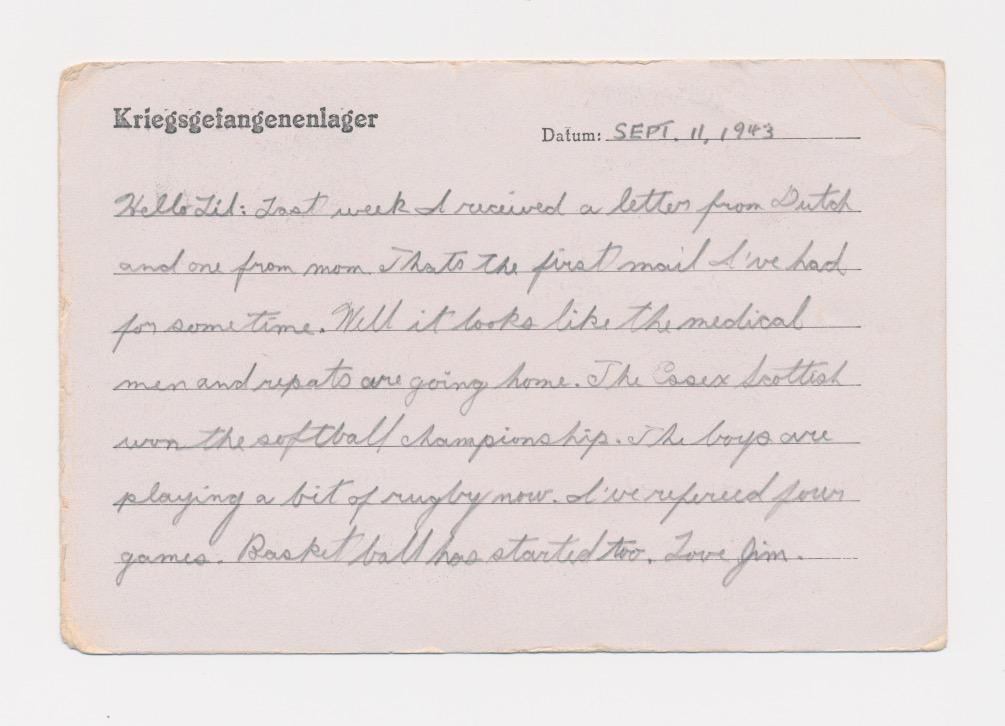 Kriegsgefangenenlager
Datum: SEPT. 11, 1943
Hello Lil: Last week I received a letter from Dutch
and one from mom. Thats the first mail I've had
for some time. Well it looks like the medical
men and repats are going home. The Essex Scottish
won the softball championship. The boys are
playing a bit of rugby now. I've refereed four
games. Basket ball has started too. Love Jim.